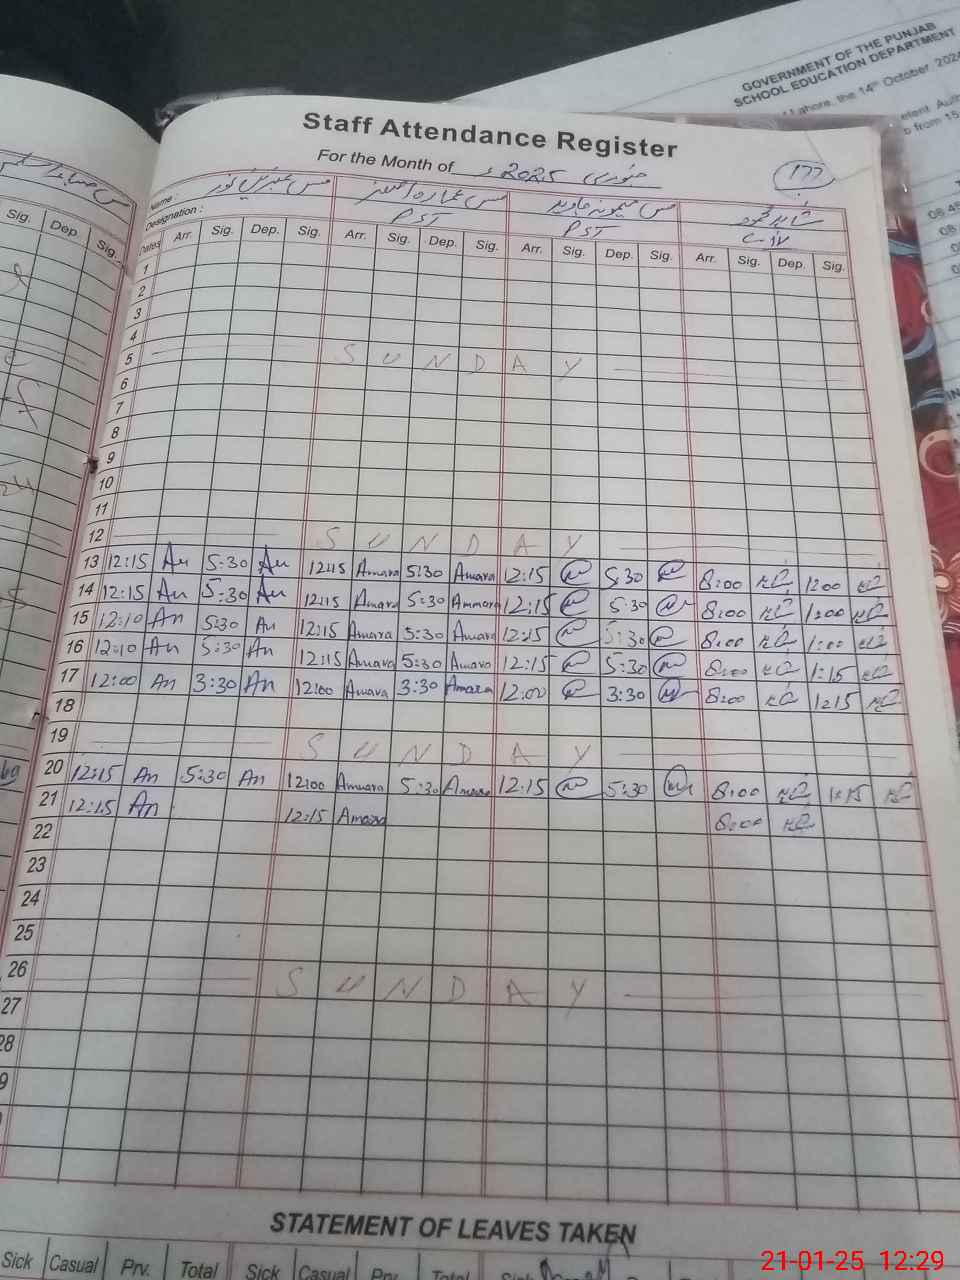 GOVERNMENT OF THE PUNJAB
SCHOOL EDUCATION DEPARTMENT
Lahore, the 14th October, 2024
Staff Attendance Register
For the Month of جنوری 2025ء
177
Name : مس عنبرین نور مس عمارہ اسلم مس میمونہ جاوید شاہد محمود
Designation : PST PST C-IV
Sig. Dep. Sig.
Dates Arr. Sig. Dep. Sig. Arr. Sig. Dep. Sig. Arr. Sig. Dep. Sig. Arr. Sig. Dep. Sig.
1
2
3
4
5 SUNDAY
6
7
8
9
10
11
12 SUNDAY
13 12:15 An 5:30 An 12:15 Amara 5:30 Amara 12:15 5:30 8:00 1:00
14 12:15 An 5:30 An 12:15 Amara 5:30 Ammara 12:15 5:30 8:00 1:00
15 12:10 An 5:30 An 12:15 Amara 5:30 Amara 12:15 5:30 8:00 1:00
16 12:10 An 5:30 An 12:15 Amara 5:30 Amara 12:15 5:30 8:00 1:15
17 12:00 An 3:30 An 12:00 Amara 3:30 Amara 12:00 3:30 8:00 1:15
18
19 SUNDAY
20 12:15 An 5:30 An 12:00 Amara 5:30 Amara 12:15 5:30 8:00 1:15
21 12:15 An 12:15 Amara 8:00
22
23
24
25
26 SUNDAY
27
28
STATEMENT OF LEAVES TAKEN
Sick Casual Prv. Total Sick Casual Prv. Total Sick
21-01-25 12:29